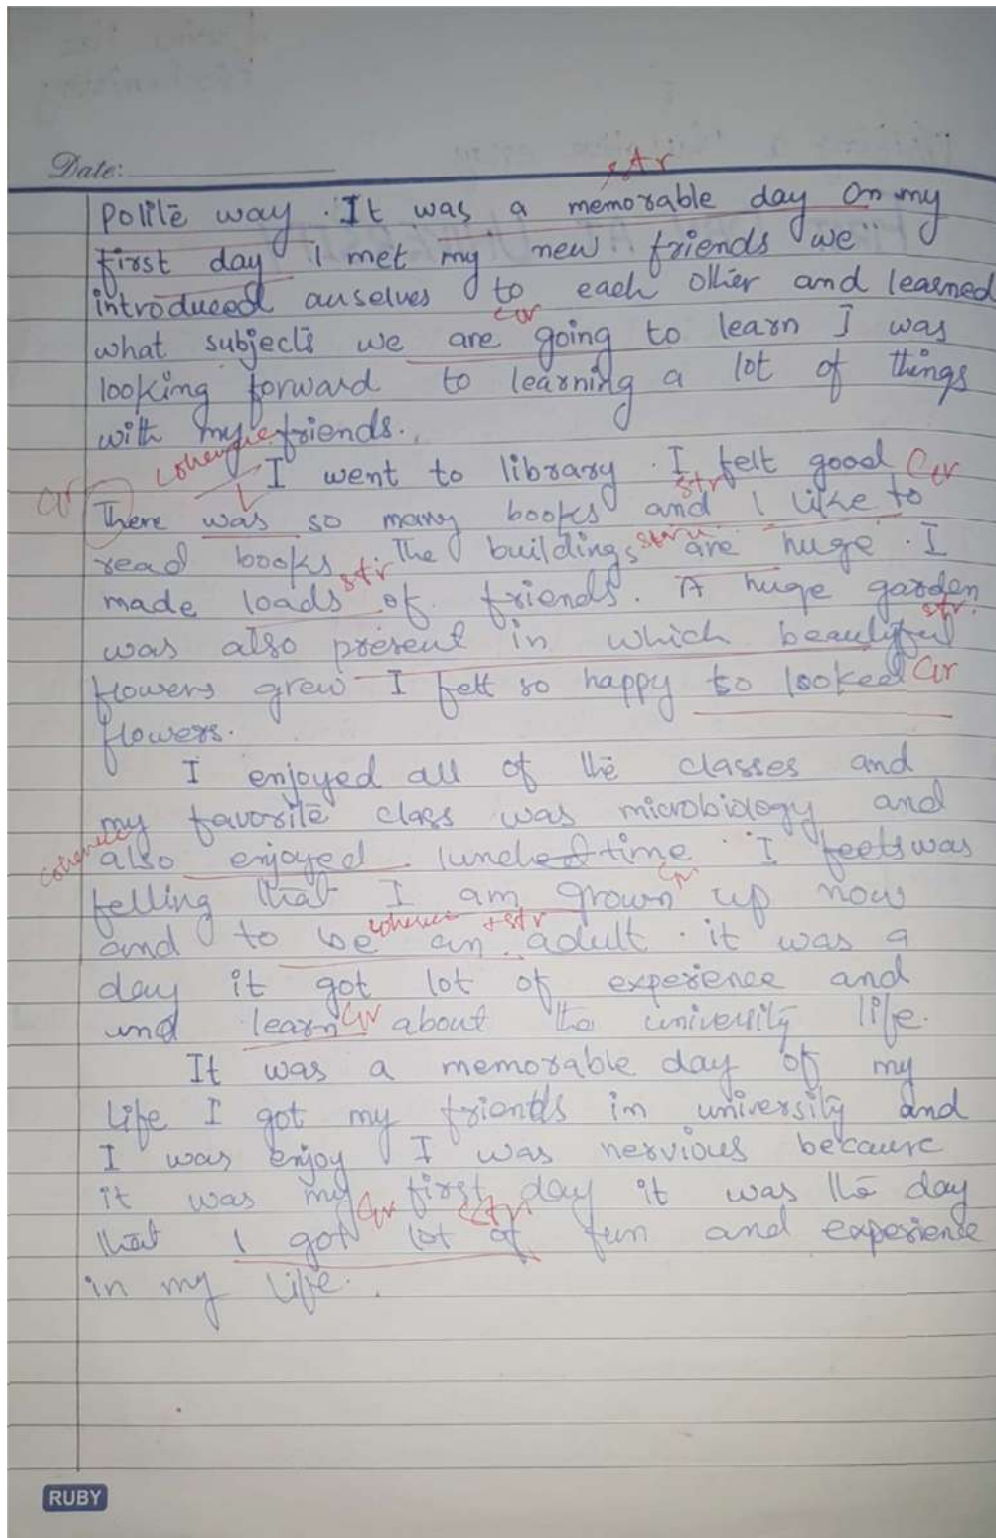 Date:
str
polite way. It was a memorable day On my
first day I met my new friends we
introduced auselves to each other and learned
Gr
what subjects we are going to learn I was
looking forward to learning a lot of things
with my friends.
coherence
I went to library. I felt good Gr
Gr
str
There was so many books and I like to
read books. The buildings are huge. I
str
made loads of friends. A huge garden
str.
was also present in which beautyful
flowers grew I felt so happy to looked Gr
flowers.
I enjoyed all of the classes and
my favorite class was microbiology and
coherence
also enjoyed lunched time. I feets was
Gr
felling that I am grown up now
coherence + str
and to be an adult. it was a
day it got lot of experience and
und learn Gr about the university life.
It was a memorable day of my
life I got my friends in university and
I was enjoy I was nervious because
it was my first day it was the day
Gr str
that I got lot of fun and experience
in my life.
RUBY